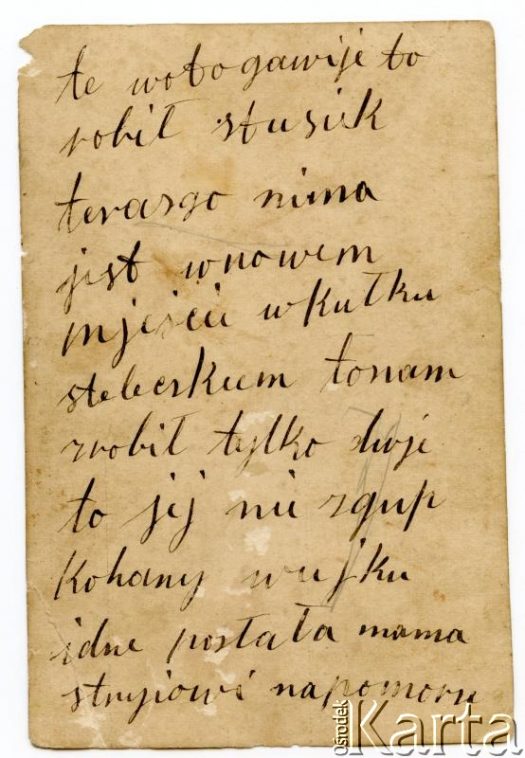 te wotogawije to
robił stusiek
terasgo nima
jest wnowem
mjescie wkułku
steleckiem tonam
zrobił tylko dwje
to jej nie zgup
kohany wujku
idne posłała mama
stryjowi napomorze
ośrodek
Karta